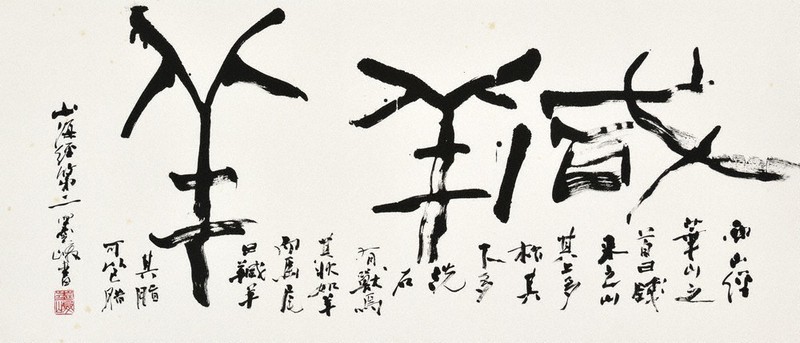 羬羊
西山經
華山之
首曰錢
來之山
其上多
松其
下多
洗
石
有獸焉
其狀如羊
而馬尾
曰羬羊
其脂
可以已腊
山海經第二 書